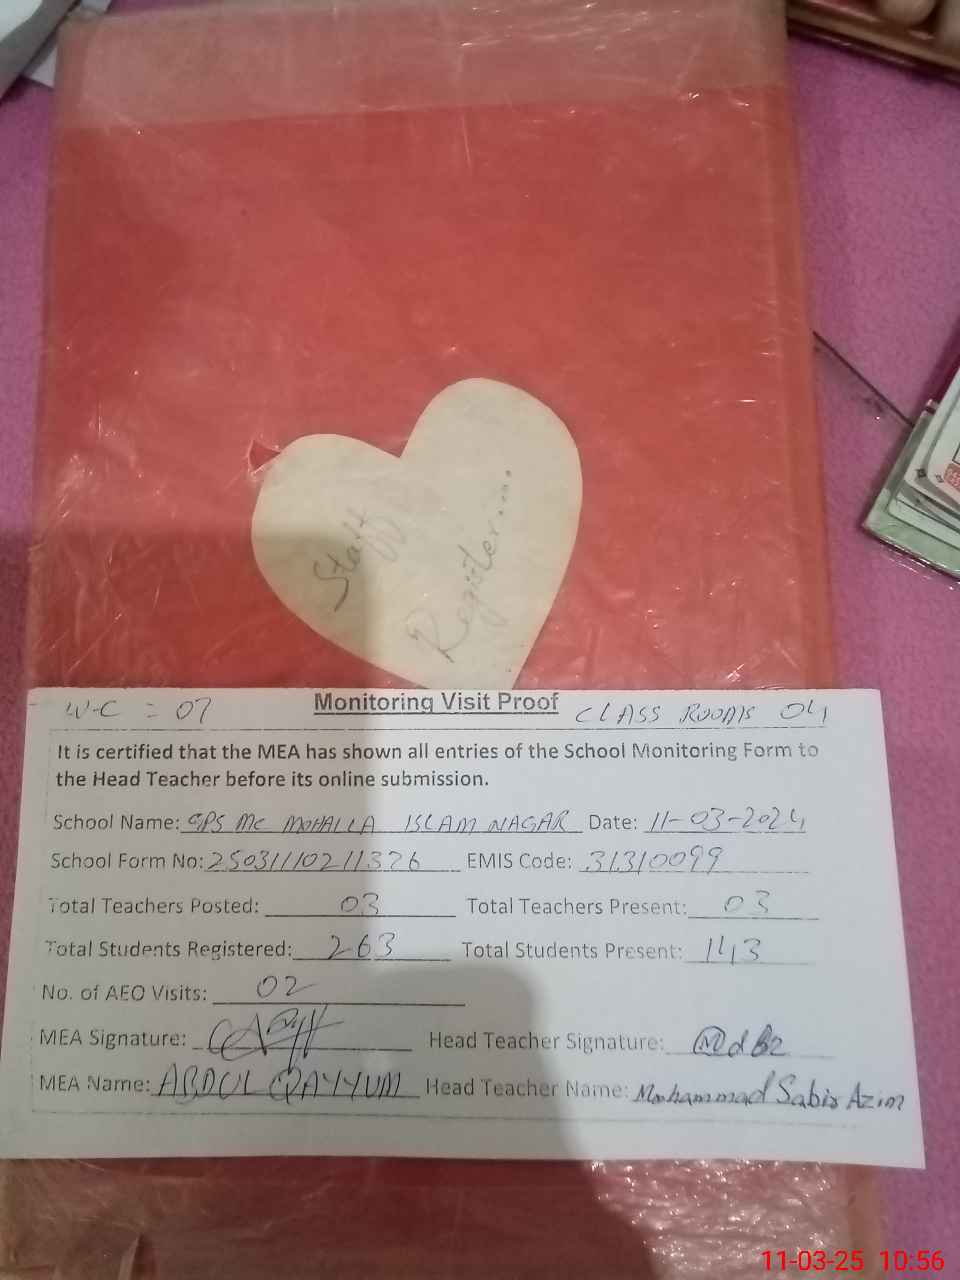 Staff
Register....
W-C = 07 Monitoring Visit Proof CLASS ROOMS 04
It is certified that the MEA has shown all entries of the School Monitoring Form to
the Head Teacher before its online submission.
School Name: GPS MC MOHALLA ISLAM NAGAR Date: 11-03-2024
School Form No: 25031110211326 EMIS Code: 31310099
Total Teachers Posted: 03 Total Teachers Present: 03
Total Students Registered: 263 Total Students Present: 143
No. of AEO Visits: 02
MEA Signature: Head Teacher Signature:
MEA Name: ABDUL QAYYUM Head Teacher Name: Mohammad Sabir Azim
11-03-25 10:56